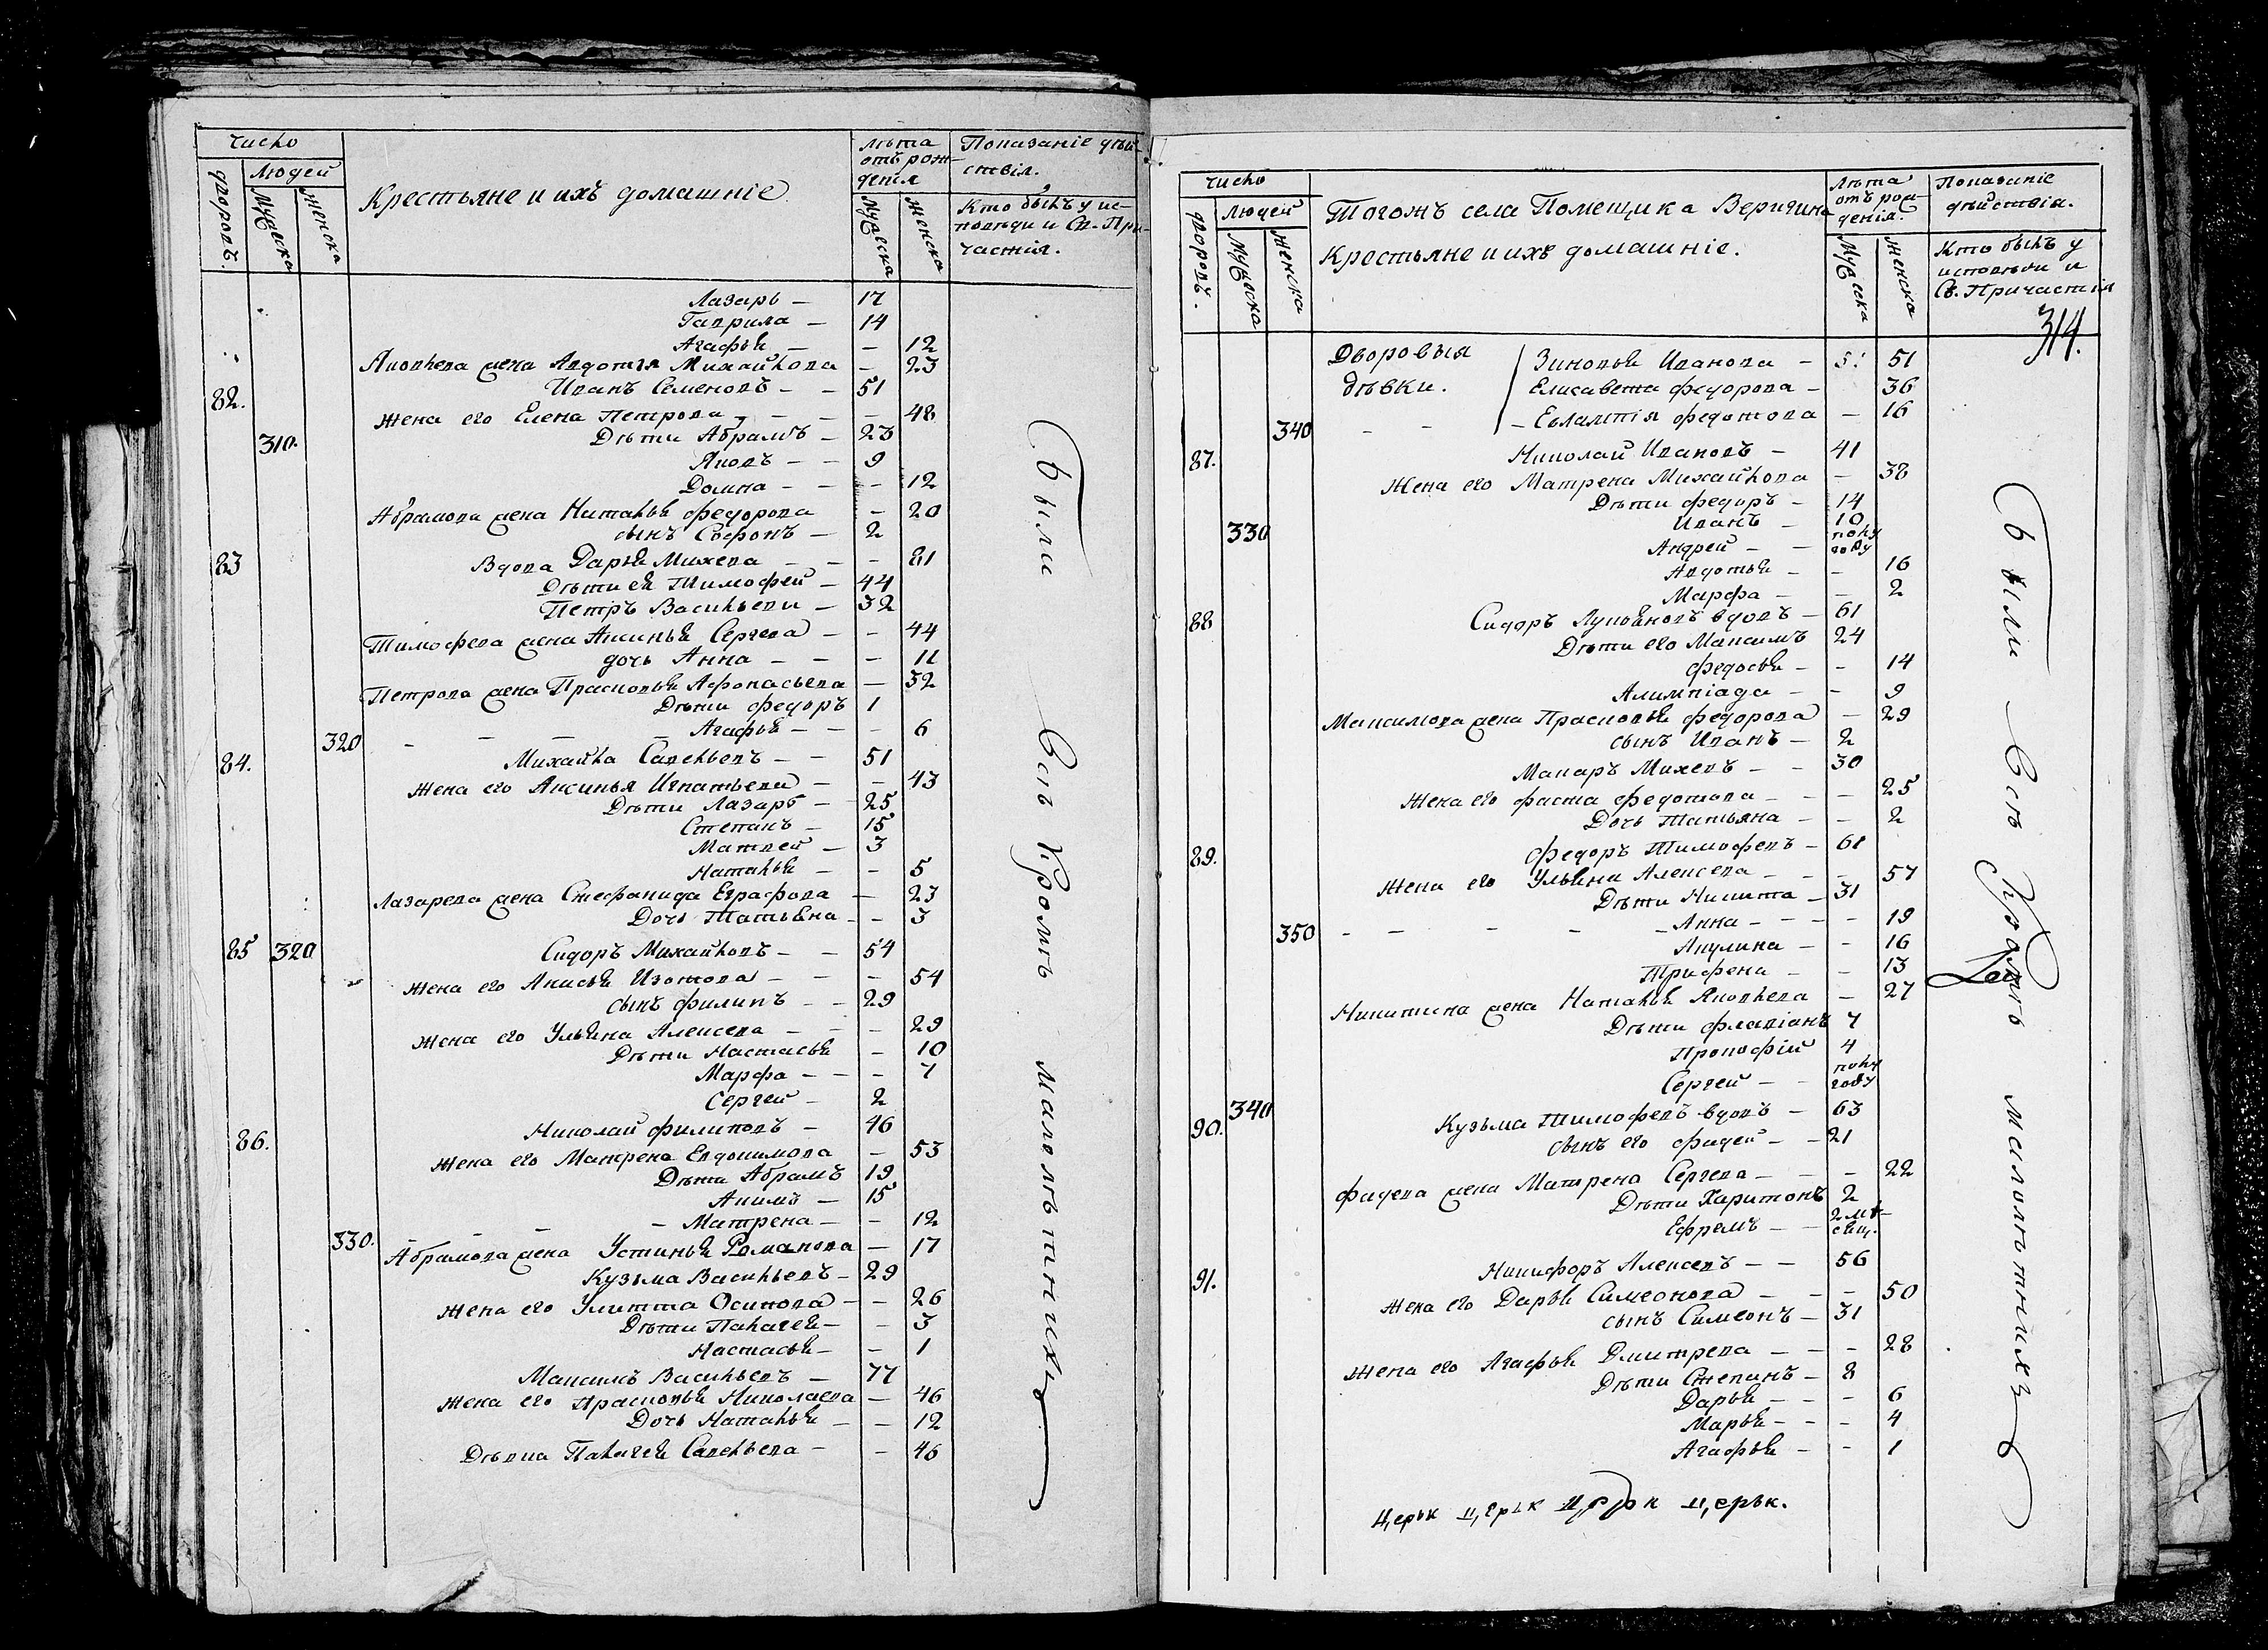 Число
Людей
дворовъ.
Мужеска
Женска
Крестьяне и ихъ домашніе
Лѣта отъ рож-
денія
Мужеска
Женска
Показаніе дѣй-
ствія.
Кто былъ у ис-
повѣди и Св. При-
частія.
Лазарь — 17
Гаврила — 14
Агафья — — 12
Яковлева жена Авдотья Михайлова — 23
82. Иванъ Семеновъ — — 51
Жена его Елена Петрова — — — 48
310. Дѣти Абрамъ — 23
Яковъ — — 9
Домна — — — 12
Абрамова жена Наталья Федорова — 20
сынъ Софонъ — 2
83 Вдова Дарья Михеева — — — 81
Дѣти ея Тимофей — 44
Петръ Васильевы — 32
Тимофеева жена Аксинья Сергеева — — 44
дочь Анна — — — 11
Петрова жена Прасковья Афонасьева — 32
Дѣти Федоръ 1
320 — — — — Агафья — — — 6
84. Михайла Савельевъ — — 51
Жена его Аксинья Игнатьева — — 43
Дѣти Лазарь — 25
Степанъ — 15
Матвей — 3
Наталья — — 5
Лазарева жена Стефанида Еграфова — 23
Дочь Татьяна — — 3
85 320 Сидоръ Михайловъ — — 54
Жена его Анисья Изотова — — — 54
сынъ Филипъ — — 29
Жена его Ульяна Алексева — — — 29
Дѣти Настасья — 10
Марфа — — — 7
Сергей — 2
86. Николай Филиповъ — 46
Жена его Матрена Евдокимова — 53
Дѣти Абрамъ 19
Акимъ — 15
330. — — — Матрена — — 12
Абрамова жена Устинья Романова — 17
Кузьма Васильевъ — 29
Жена его Улитта Осипова — — 26
Дѣти Палагея — — 3
Настасья — — 1
Максимъ Васильевъ — 77
Жена его Прасковья Николаева — 46
Дочь Наталья — — 12
Дѣвка Палагея Савельева — — 46
Были Всѣ Кромѣ малолѣтнихъ
Число
Людей
дворовъ.
Мужеска
Женска
Тогожъ села Помещика Веригина
Крестьяне и ихъ домашніе.
Лѣта
отъ рож-
денія.
Мужеска
Женска
Показаніе
дѣйствія.
Кто былъ у
исповѣди и
Св. Причастія
314.
Дворовыя Зиновья Иванова — 51
дѣвки. Елисавета Федорова — 36
340 — — — Евлампія Федотова — 16
87. Николай Ивановъ — 41
Жена его Матрена Михайлова — 38
Дѣти Федоръ — 14
330 Иванъ — 10
Андрей — — полу
году
Авдотья — — 16
Марфа — — 2
88 Сидоръ Лукьяновъ вдовъ — 61
Дѣти его Максимъ 24
Федосья — — 14
Алимпіада — — 9
Максимова жена Прасковья Федорова — 29
сынъ Иванъ — 2
Макаръ Михевъ — — 30
Жена его Фаста Федотова — — — 25
Дочь Татьяна — — 2
89. Федоръ Тимофевъ — 61
Жена его Ульяна Алексева — — — 57
Дѣти Никита — 31
350 — — — — — Анна — — — — 19
Акулина — — 16
Трифена — — 13
Никитина жена Наталья Яковлева — 27
Дѣти Флавіанъ 7
Прокофій 4
Сергей — — полу
году
340
90. Кузьма Тимофевъ вдовъ — 63
сынъ его Фадей — — 21
Фадева жена Матрена Сергева — — — 22
Дѣти Харитонъ 2
Ефремъ — — 2 мѣ-
сяц.
91. Никифоръ Алексевъ — — 56
Жена его Дарья Симеонова — — — 50
сынъ Симеонъ — 31
Жена его Агафья Дмитрева — — — 28
Дѣти Степанъ — 8
Дарья — — — 6
Марья — — — 4
Агафья — — 1
Церьк церьк церьк церьк.
Были Всѣ Кромѣ малолѣтнихъ